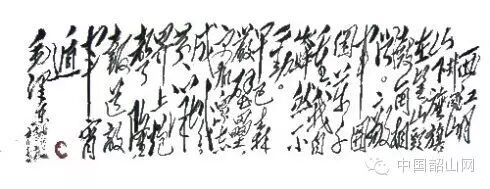 西江月
山下旌旗
在望山头
鼓角相
闻敌
军围
困万千
重我自
岿然不
动
早已森
严壁垒
更加众志
成城
黄洋
界上炮
声隆
报道敌
军宵
遁
毛泽东
中国韶山网